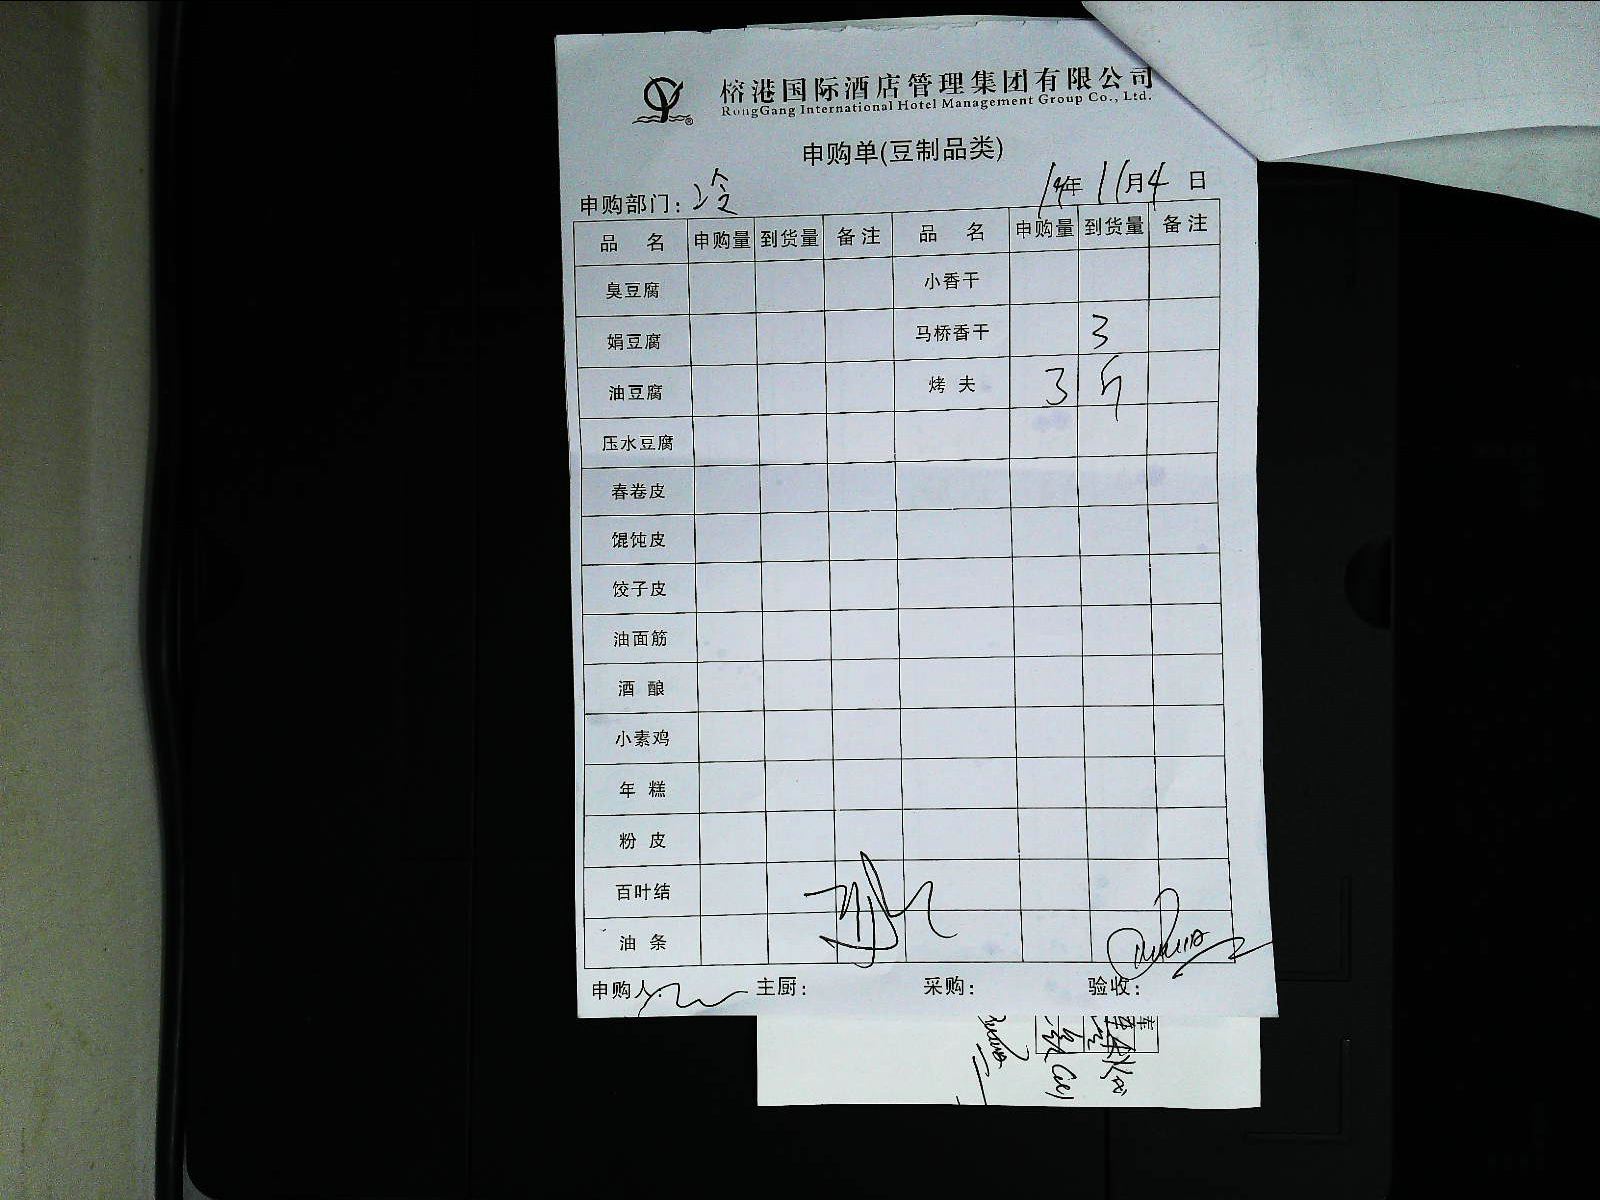 榕港国际酒店管理集团有限公司
RongGang International Hotel Management Group Co., Ltd.
申购单(豆制品类)
申购部门: 冷 14年 11月 4 日
品 名 申购量 到货量 备注 品 名 申购量 到货量 备注
臭豆腐 小香干
娟豆腐 马桥香干 3
油豆腐 烤 夫 3 斤
压水豆腐
春卷皮
馄饨皮
饺子皮
油面筋
酒 酿
小素鸡
年 糕
粉 皮
百叶结
油 条
申购人: 主厨: 采购: 验收: